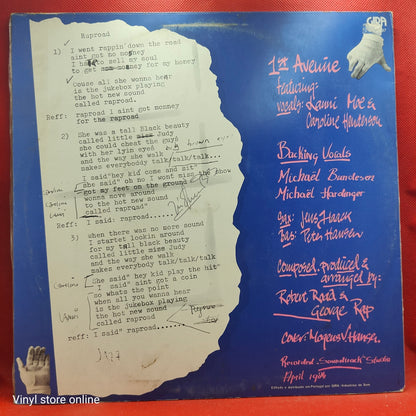 Raproad
1) I went rappin'down the road
aint got no mosney
I had to sell my soul
to get some money for my honey
Couse all she wonna hear
is the jukebox playing
the hot new sound
called raproad.
Reff: raproad i aint got mosney
for the raproad
2) She was a tall Black beauty
called little miss Judy
she could cheat the guys
with her lyin eyes
and the way she walk
makes everybody talk/talk/talk...
I said"hey kid come and
she said" oh no I wont miss the show
got my feet on the ground
wonna move around
to the hot new sound
called raproad"
Reff: I said: raproad.....
3) when there was no more sound
I startet lookin around
for my tall black beauty
called little miss Judy
and the way she walk
makes everybody talk/talk/talk
She said" hey kid play the hit"
I said" aint got a coin
so whats the point
when all you wanna hear
is the jukebox playing
the hot new sound
called raproad
reff: I said" raproad.....
GIRA
1st Avenue
Featuring:
Vocals: Lanni Moe &
Caroline Henderson
Backing Vocals
Michael Bundesen
Michael Hardinger
Sax: Jens Haack
Bas: Peter Hansen
Composed, produced &
arranged by:
Robert Road &
George Rap
Cover: Mogens Hansen
Recorded "Soundtrack" Studio
April 1984
Vinyl store online